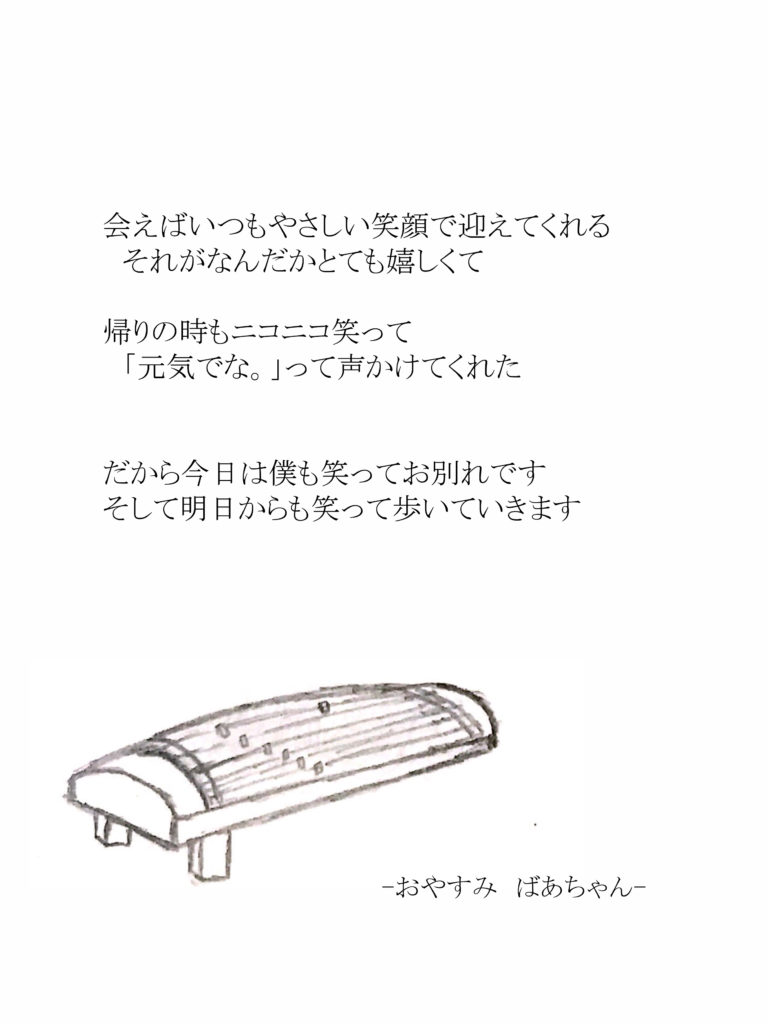 会えばいつもやさしい笑顔で迎えてくれる
それがなんだかとても嬉しくて
帰りの時もニコニコ笑って
「元気でな。」って声かけてくれた
だから今日は僕も笑ってお別れです
そして明日からも笑って歩いていきます
-おやすみ　ばあちゃん-